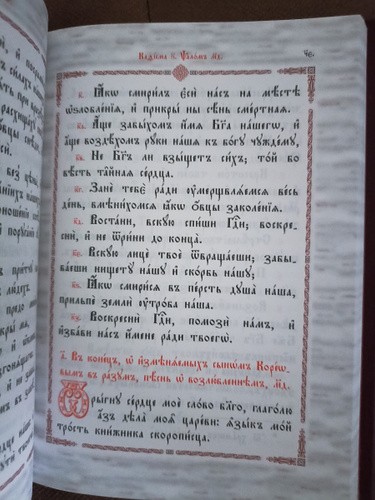 Каѳі́сма ѕ҃. Ѱало́мъ м҃д.
к҃. Ꙗ҆́кѡ смири́лъ є҆сѝ на́съ на мѣ́стѣ
ѡ҆ѕлобле́нїѧ, и҆ прикры́ ны сѣ́нь сме́ртнаѧ.
к҃а. А҆́ще забы́хомъ и҆́мѧ бг҃а на́шегѡ, и҆
а҆́ще воздѣ́хомъ рꙋ́ки на́шѧ къ бо́гꙋ чꙋжде́мꙋ,
к҃в. Не бг҃ъ ли взы́щетъ си́хъ; то́й бо
вѣ́сть та̑йнаѧ се́рдца.
к҃г. Занѐ тебє̀ ра́ди ᲂу҆мерщвлѧ́емсѧ ве́сь
де́нь, вмѣни́хомсѧ ꙗ҆́кѡ ѻ҆́вцы заколе́нїѧ.
к҃д. Воста́ни, вскꙋ́ю спи́ши гдⷭ҇и; воскре-
снѝ, и҆ не ѿри́ни до конца̀.
к҃е. Вскꙋ́ю лицѐ твоѐ ѿвраща́еши; забы-
ва́еши нищетꙋ̀ на́шꙋ и҆ ско́рбь на́шꙋ;
к҃ѕ. Ꙗ҆́кѡ смири́сѧ въ пе́рсть дꙋша̀ на́ша,
прильпѐ землѝ ᲂу҆тро́ба на́ша.
к҃з. Воскре́сни гдⷭ҇и, помозѝ на́мъ, и҆
и҆зба́ви на́съ и҆́мене ра́ди твоегѡ̀.
а҃. Въ коне́цъ, ѡ҆ и҆змѣнѧ́емыхъ сынѡ́мъ коре́ѡ-
вымъ въ ра́зꙋмъ, пѣ́снь ѡ҆ возлю́бленнѣмъ, м҃д.
Ѿры́гнꙋ се́рдце моѐ сло́во бл҃го, глаго́лю
а҆́зъ дѣла̀ моѧ̑ царе́ви: ꙗ҆зы́къ мо́й
тро́сть кни́жника скоропи́сца.